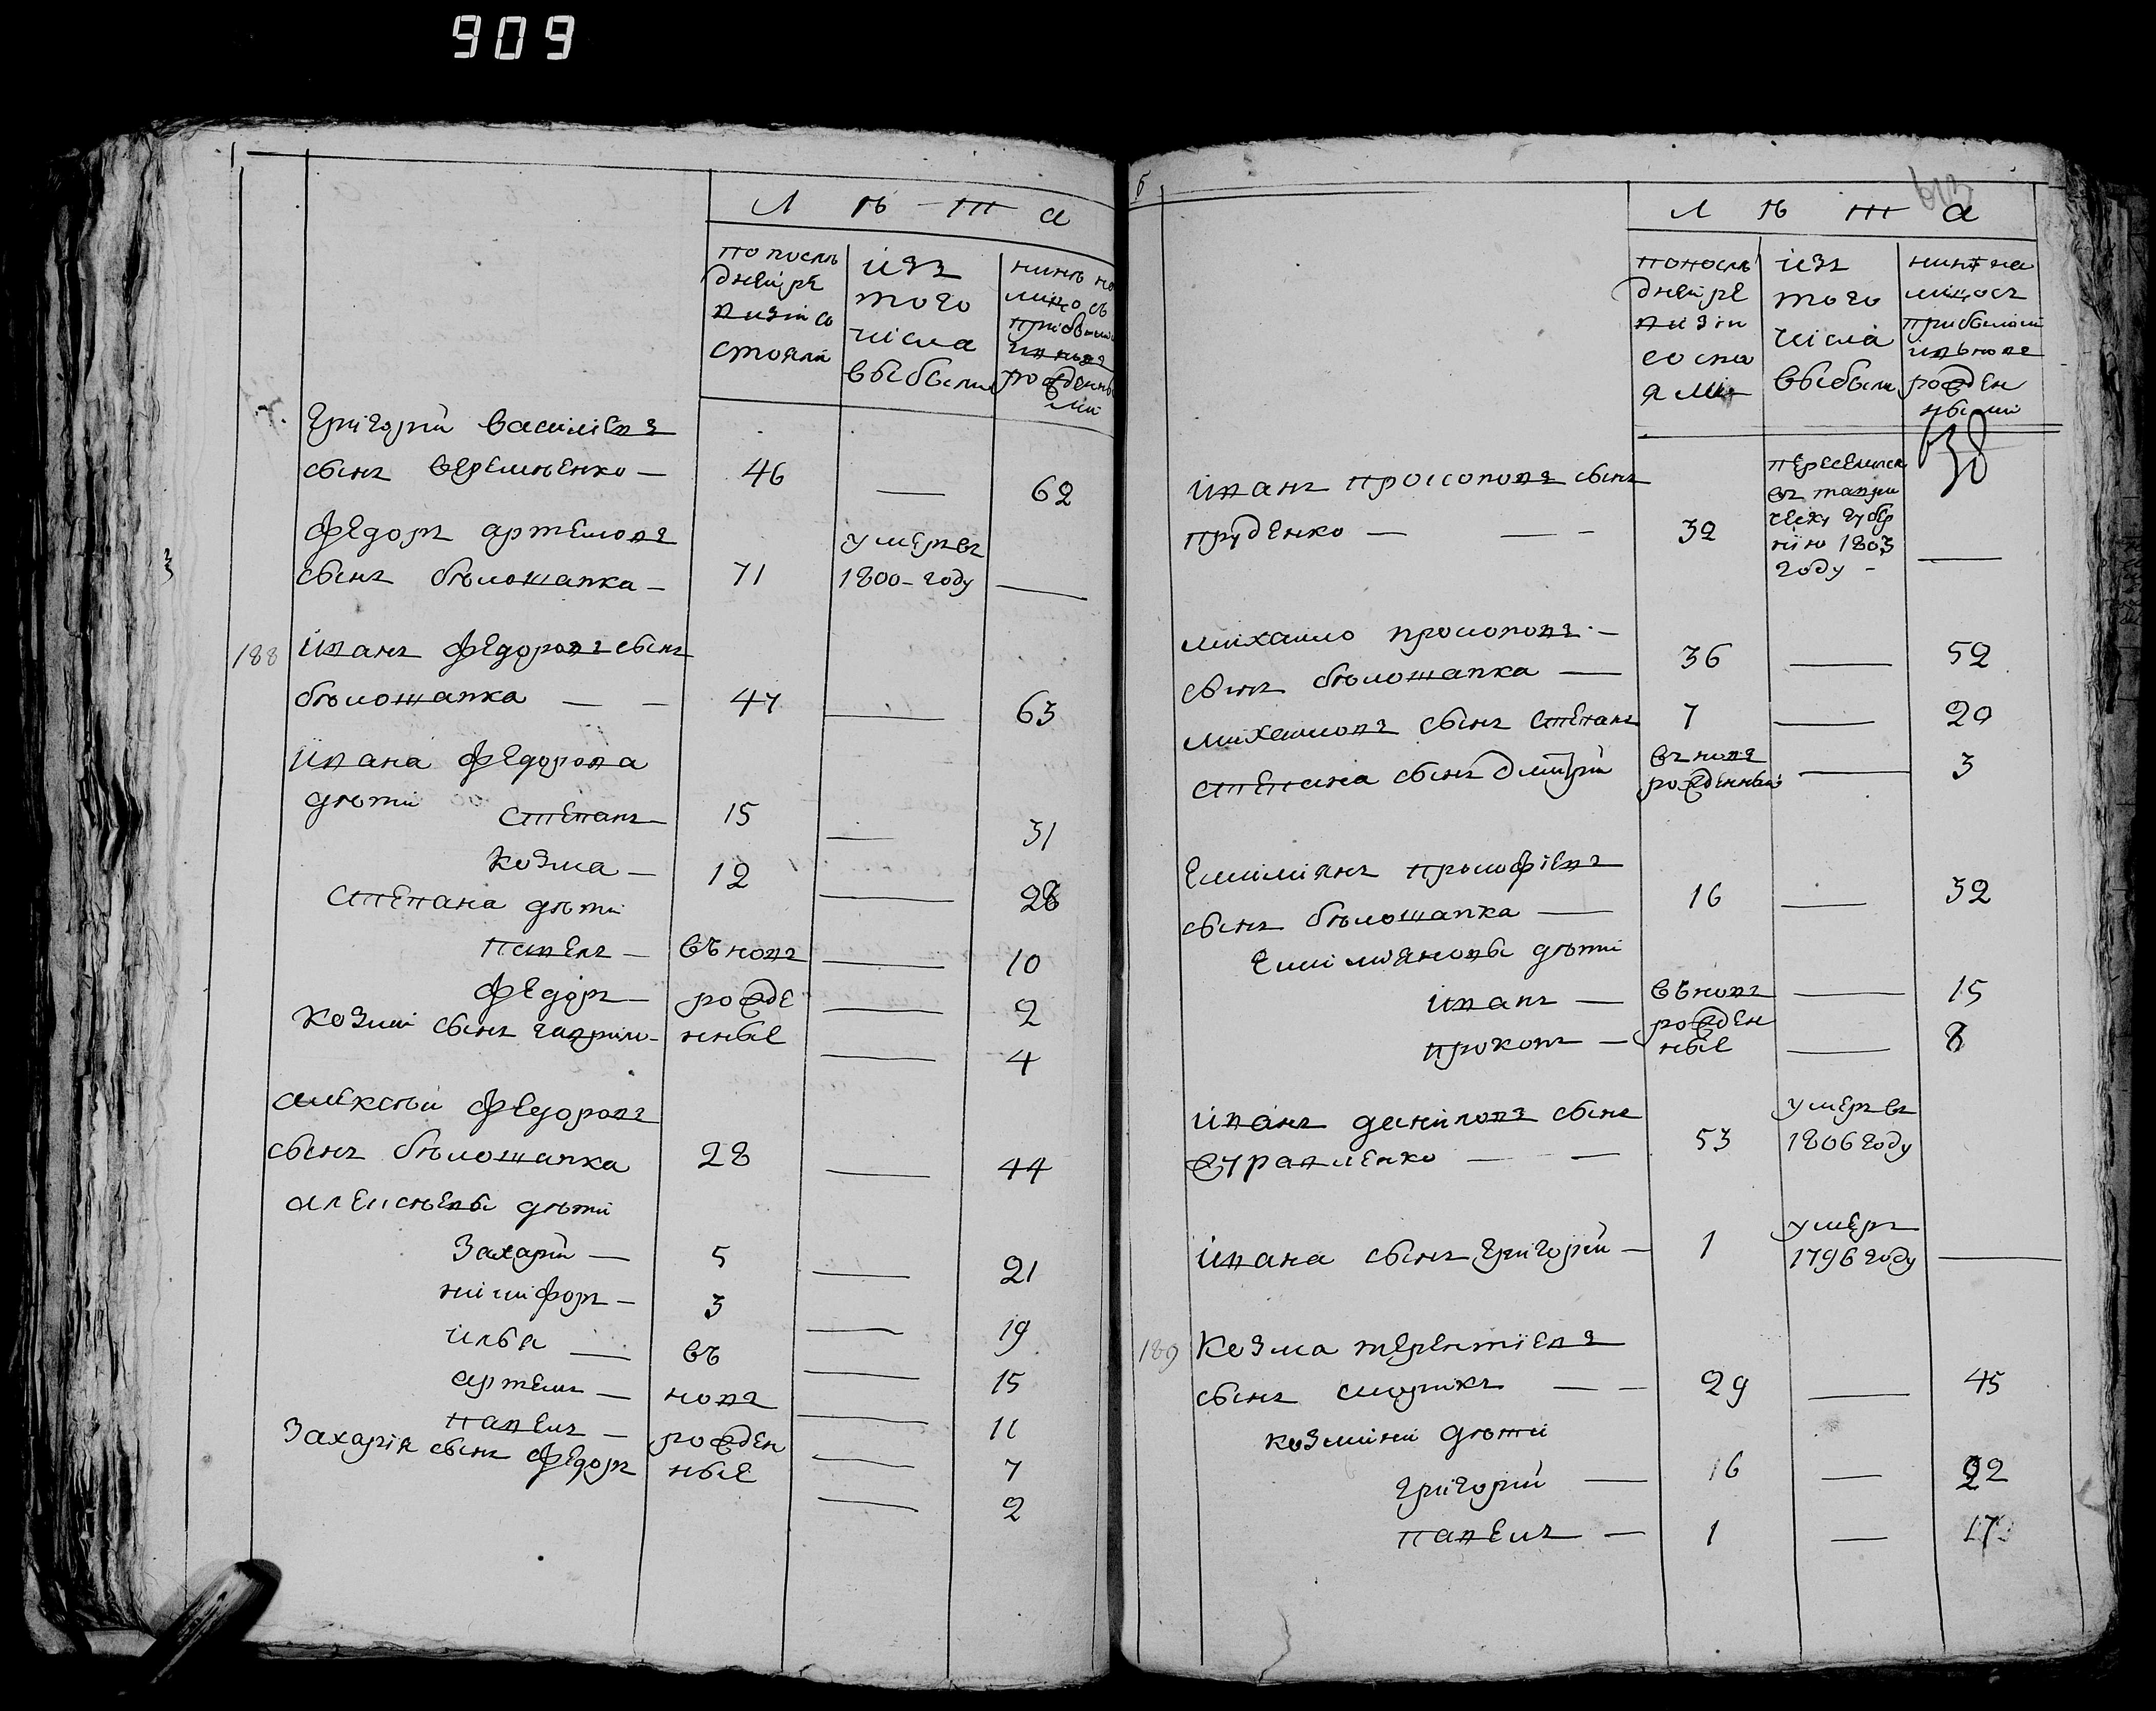 909
Л ѣ т а
по послѣ
дней ре
визіи со
стояли
изъ
того
числа
выбыли
нынѣ на
лицо съ
прибылыми
и вновь
рожденны
ми
Григорій Васильевъ
сынъ Веремѣенко — 46 — 62
Федоръ Артемовъ
сынъ Бѣлошапка — 71 умеръ въ
1800 – году —
188 Иванъ Федоровъ сынъ
Бѣлошапка — — 47 — 63
Ивана Федорова
дѣти Степанъ — 15 — 31
Козма — 12 — 28
Степана дѣти
Павелъ — въ новъ — 10
Федоръ — рожде — 2
Козми сынъ Гаврило — нные — 4
Алексѣй Федоровъ
сынъ Бѣлошапка 28 — 44
Алексѣевы дѣти
Захарій — 5 — 21
Никифоръ — 3 — 19
Илья — въ — 15
Артемъ — новъ — 11
Павелъ — рожден — 7
Захарія сынъ Федоръ ные — 2
613
Л ѣ т а
по послѣ
дней ре
визіи
состо
яли
изъ
того
числа
выбыли
нынѣ на
лицо съ
прибылыми
и вновь
рожден
ными
638
Иванъ Проسоповъ сынъ
Пруденко — — — 32
переселился
въ Таври
ческу губер
нію 1803
году — —
Михайло Проноповъ —
сынъ Бѣлошапка — 36 — 52
Михайловъ сынъ Степанъ 7 — 20
Степана сынъ Дмитрій въ новъ
рожденный — 3
Емиліянъ Прокофіевъ
сынъ Бѣлошапка — 16 — 32
Емиліяновы дѣти
Иванъ — въ новъ — 15
Прокопъ — рожден
ные — 8
Иванъ Даниловъ сынъ
Журавленко — — 53 умеръ въ
1806 году
Ивана сынъ Григорій — 1 умеръ
1796 году —
189 Козма Терентіевъ
сынъ — — 29 — 45
Козмини дѣти
Григорій — 16 — 22
Павелъ — 1 — 17